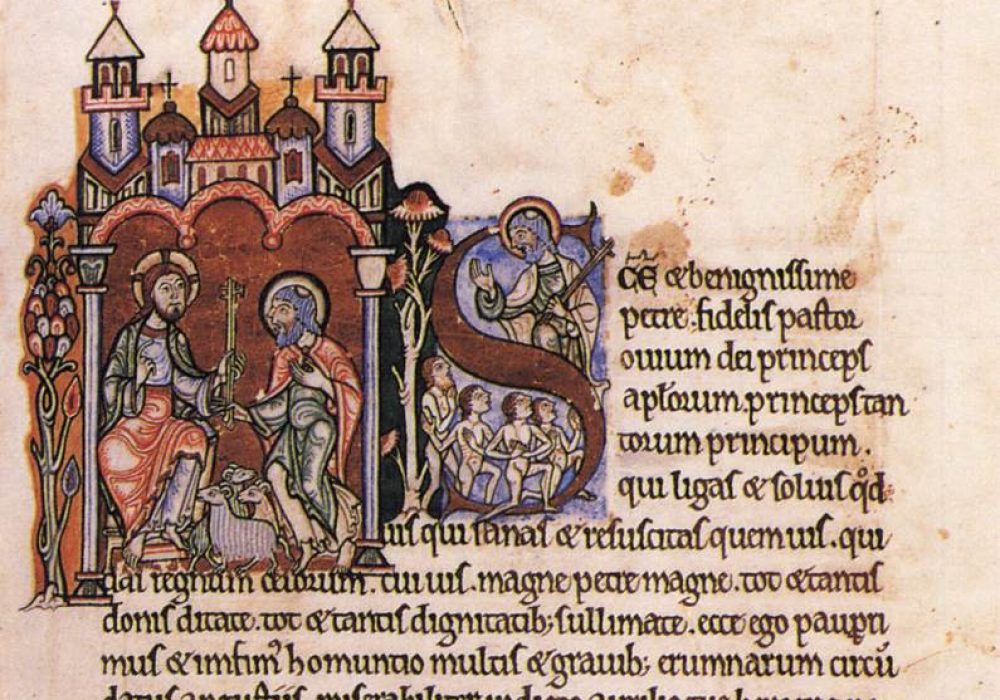 S c̄e & benignissime
petre, fidelis pastor
ouium dei princeps
aplorum, princeps tan
torum principum.
qui ligas & soluis qd
uis qui sanas & resuscitas quem uis. qui
das regnum celorum. cui uis. magne petre magne. tot & tantis
donis ditate. tot & tantis dignitatib; sullimate. ecce ego paupri
mus & infim' homuntio multis & grauib; erumnarum circū
datus angustiis miserabiliter indigeo auxilio